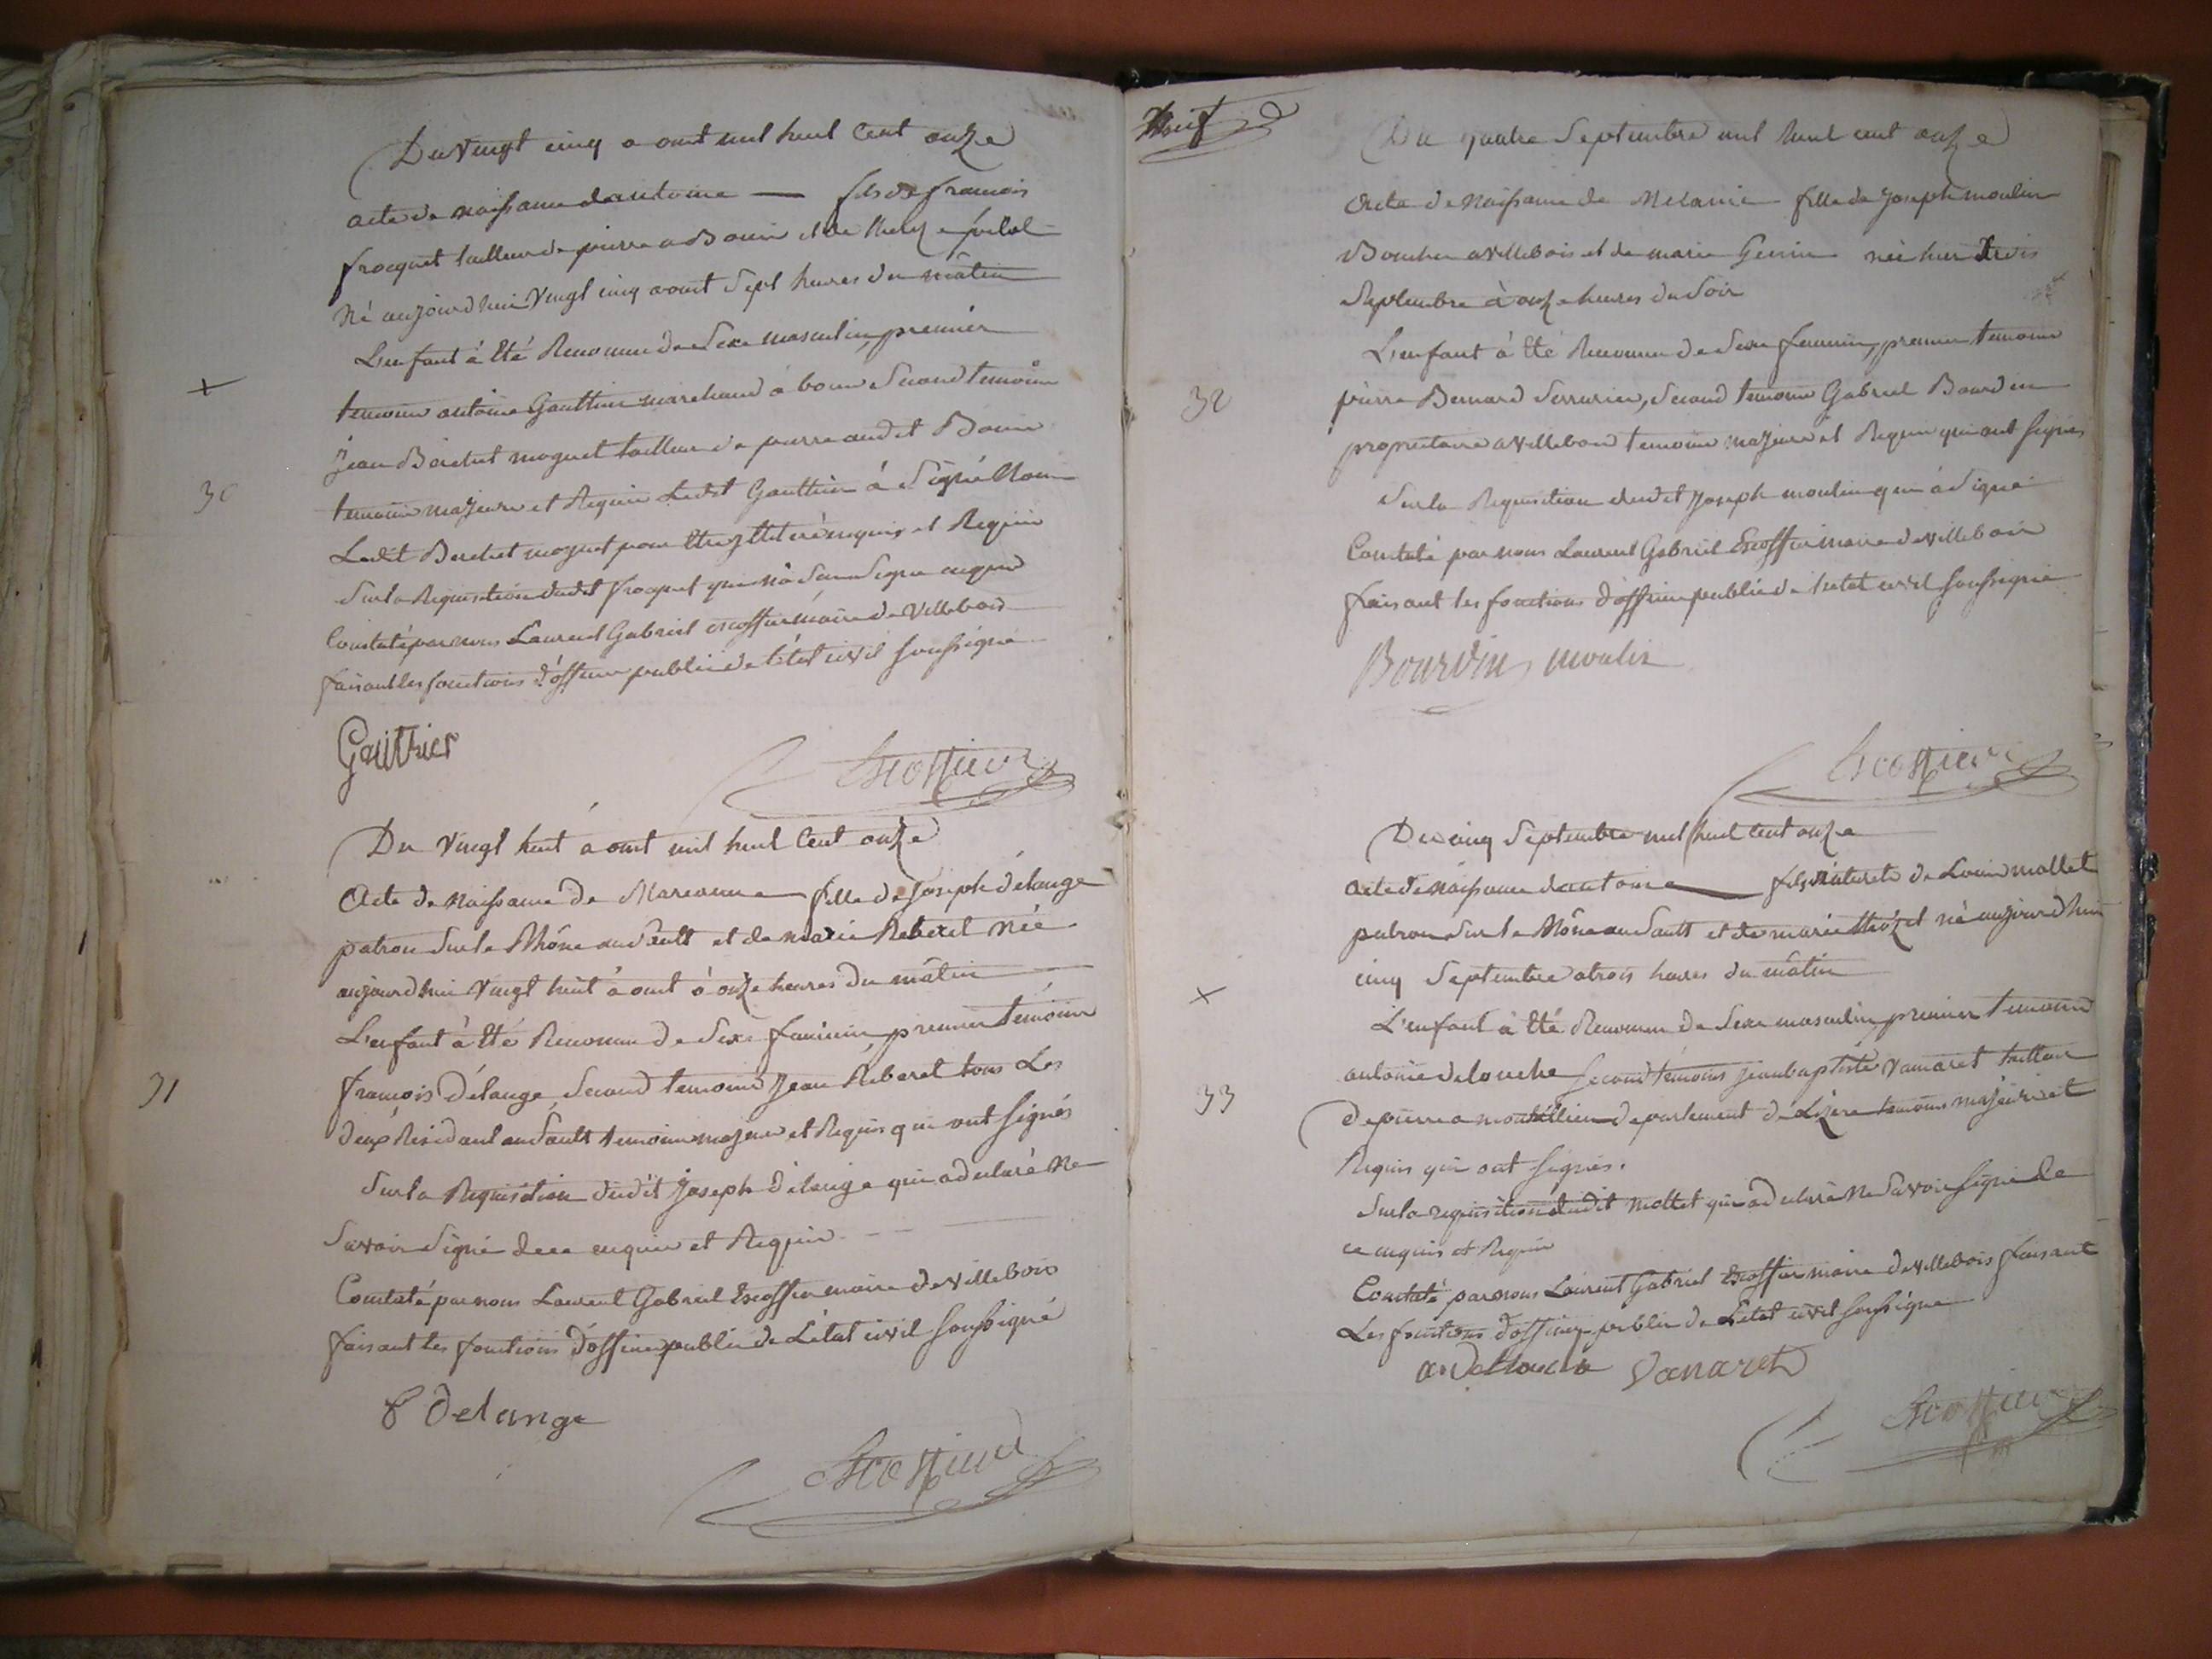 Du vingt cinq aout mil huit Cent onze
acte de naissance dantoine — fils de francois
frocquet tailleur de pierre a Bouis et de
Né aujourdhui Vingt cinq aout Sept heures du mâtin
L'enfant à été Reconnu de Sexe masculin, premier
temoin antoine Gauthier marchand à bouis Second temoin
jean Berchet moguet tailleur de pierre audit Bouis
temoins majeurs et Requis Ledit Gauthier à Signé Non
Ledit Berchet moguet pour être illiteré enquis et Requis
Sur la Requisition dudit frocquet qui n'a Scu Signe enquis
Constaté par nous Laurent Gabriel escoffier maire de Villebois
faisant les fonctions d'officier public de létat civil soussigné
30
Gauthier
Escoffier
Du Vingt huit aout mil huit Cent onze
Acte de Naissance de Marianne fille de Joseph délange
patron Sur le Rhône au Sault et de marie Reberet Née
aujourdhui Vingt huit aout à onze heures du mâtin
L'enfant à été Reconnu de Sexe feminin, premier témoin
françois Délange, Second temoins Jean Réberet tous Les
deux Residant au Sault temoins majeurs et Requis qui ont Signés
31
Sur la Requisition dudit Joseph délange qui a déclaré Ne
Savoir Signé de ce enquis et Requis
Constaté par nous Laurent Gabriel Escoffier maire de villebois
faisant les fonctions d'officier public de L'état civil soussigné
f Delange
Escoffier
Neuf
Du quatre Septembre mil huit cent onze
Acte de Naissance de Melanie fille de Joseph moulin
Boucher a villebois et de marie Genin née hier trois
Septembre à onze heures du Soir
L'enfant à été Reconnu de Sexe feminin, premier temoin
pierre Bernard Serrurier, Second temoin Gabriel Bourdin
32
propriétaire a villebois temoins majeurs et Requis qui ont signés
Sur la Requisition dudit Joseph moulin qui à Signé
Constaté par nous Laurent Gabriel Escoffier maire de villebois
faisant les fonctions d'officier public de létat civil soussigné
Bourdin moulin
Escoffier
Du cinq Septembre mil huit Cent onze
acte de naissance dantoine fils de Louis mollet
patron Sur le Rhône au Sault et de marie né aujourdhui
cinq Septembre a trois heures du mâtin
L'enfant à été Reconnu de Sexe masculin, premier temoin
antoine delouche Second témoins jean baptiste Vanaret tailleur
33
de pierre a departement de Lizere temoins majeurs et
Requis qui ont signés.
Sur la requisition dudit mollet qui a declaré Ne Savoir Signé de
ce enquis et Requis
Constaté par nous Laurent Gabriel Escoffier maire de villebois faisant
Les fonctions d'officier public de Létat civil soussigné
Vanaret
Escoffier